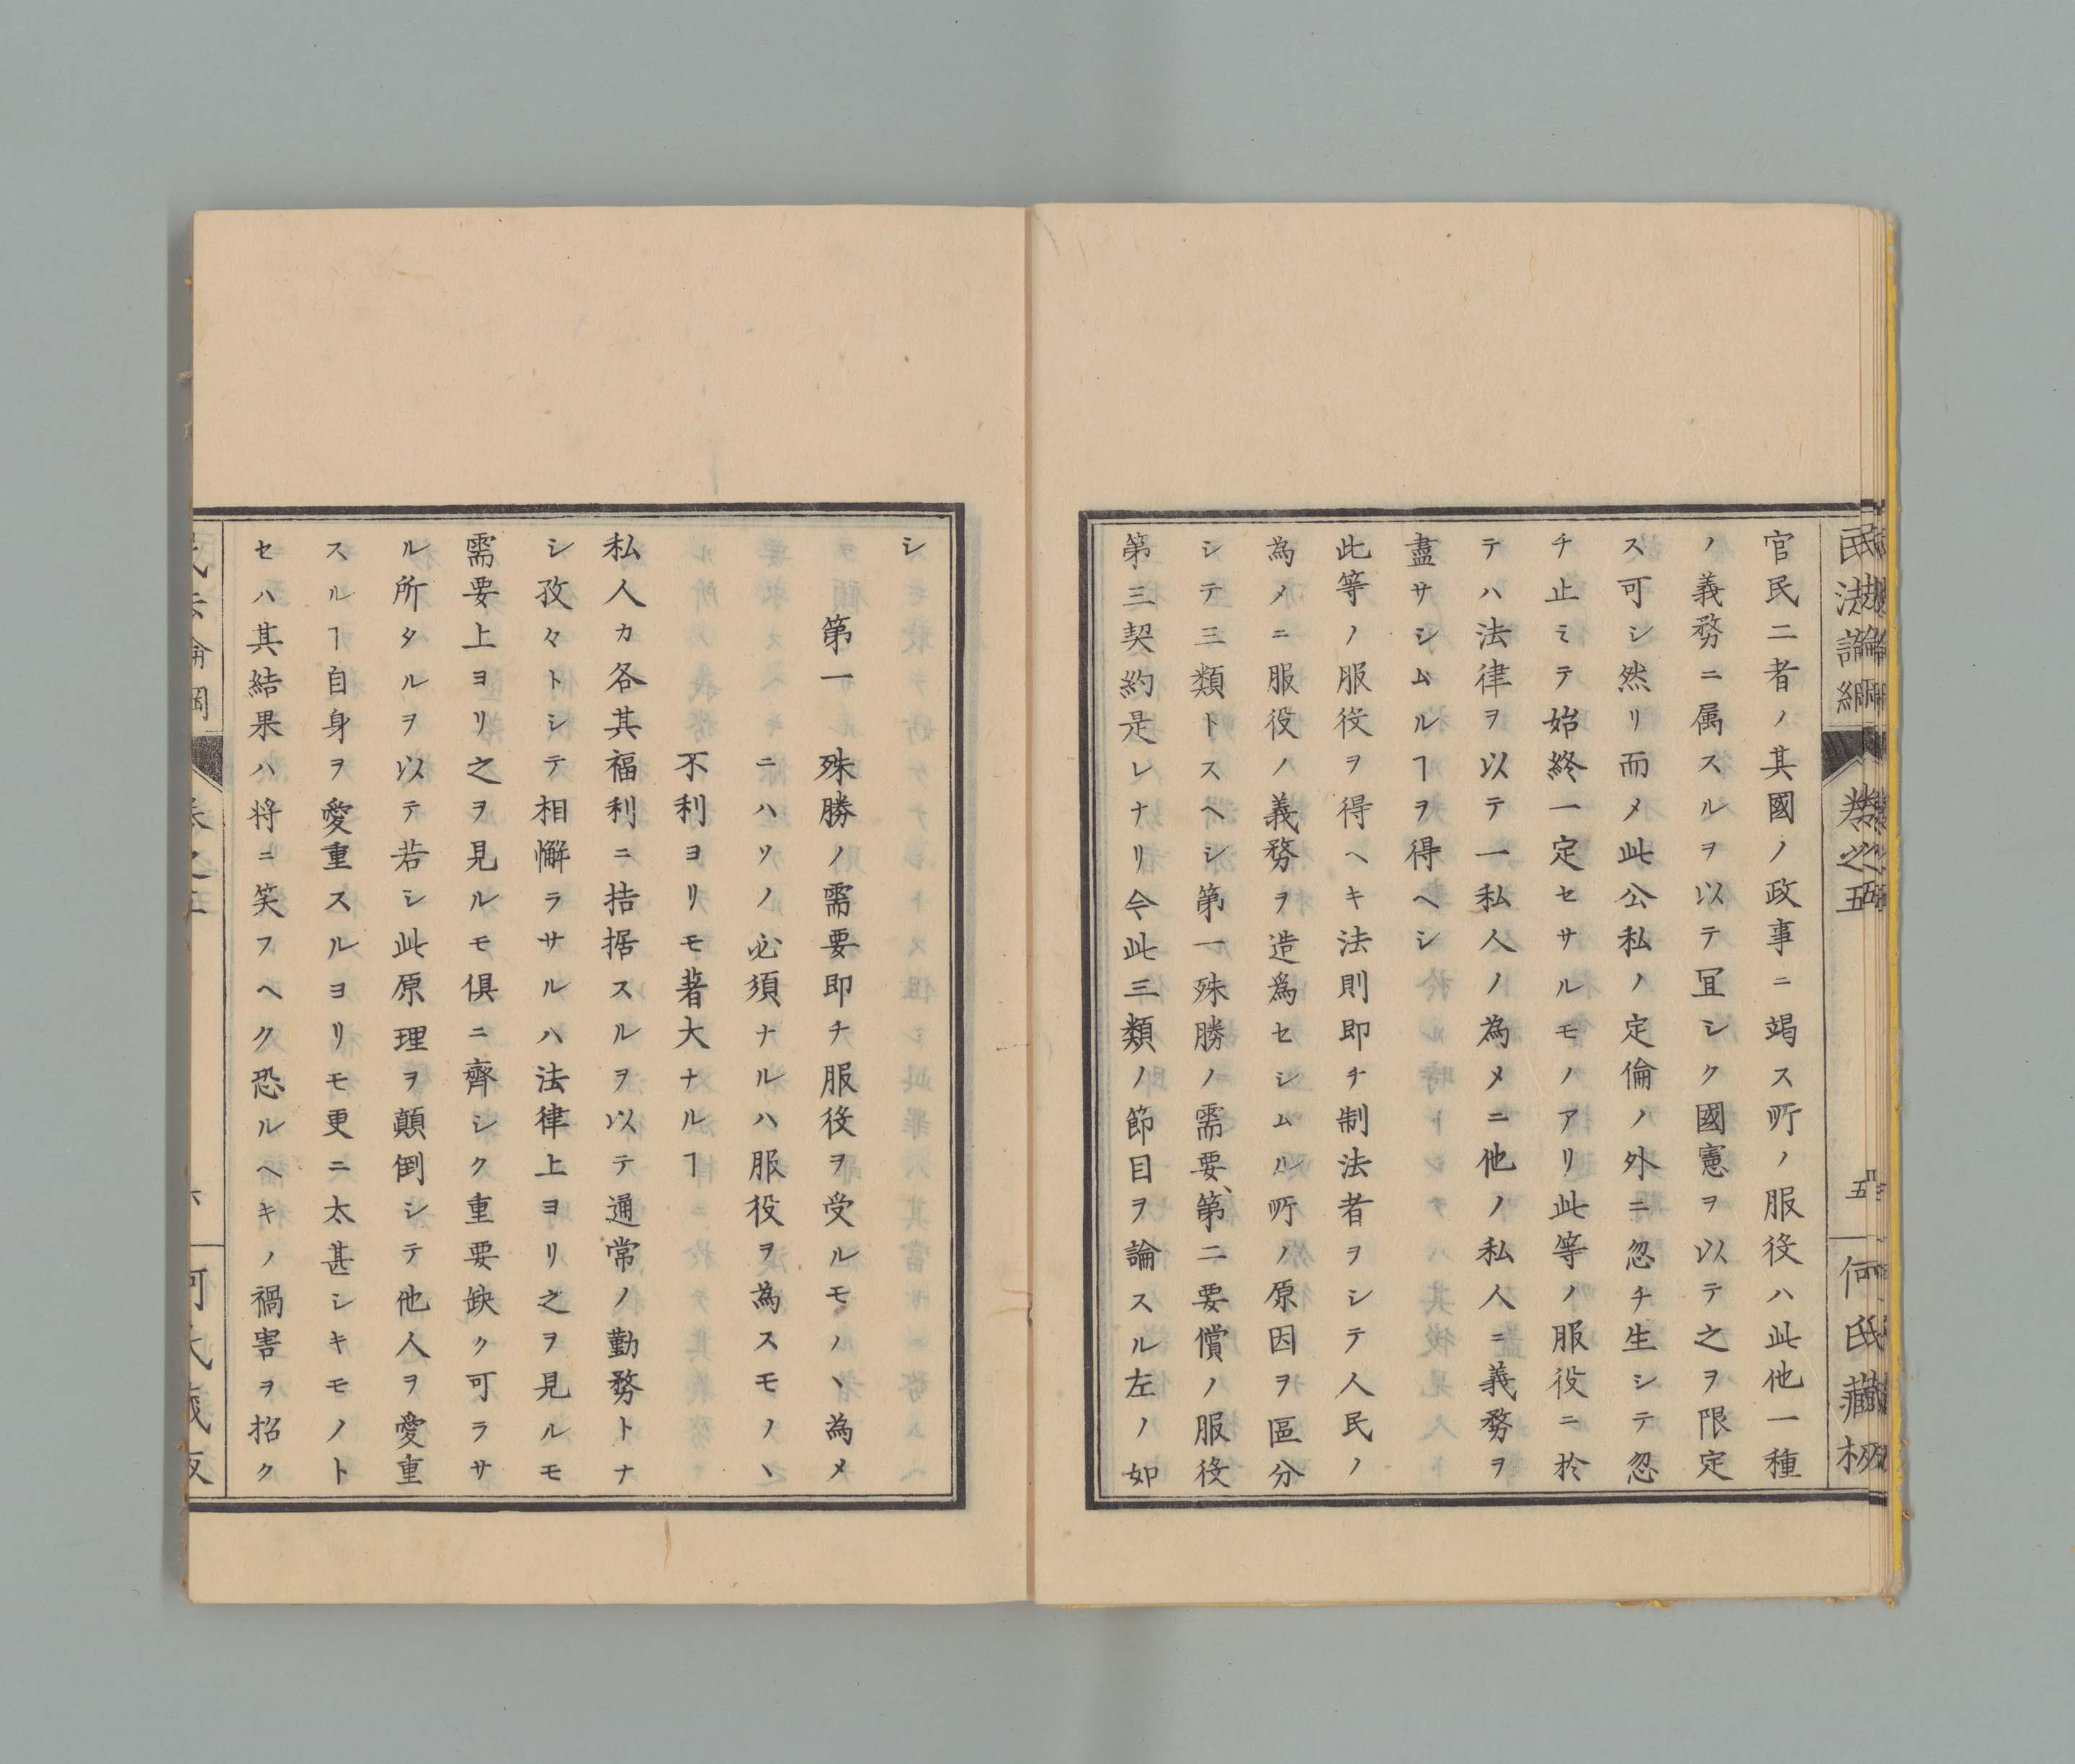 民法論綱
卷之五
五
何氏藏板
官民二者ノ其國ノ政事ニ竭ス所ノ服役ハ此他一種
ノ義務ニ属スルヲ以テ冝シク國憲ヲ以テ之ヲ限定
ス可シ然リ而メ此公私ノ定倫ノ外ニ忽チ生シテ忽
チ止ミテ始終一定セサルモノアリ此等ノ服役ニ於
テハ法律ヲ以テ一私人ノ為メニ他ノ私人ニ義務ヲ
盡サシムルヿヲ得ヘシ
此等ノ服役ヲ得ヘキ法則即チ制法者ヲシテ人民ノ
為メニ服役ノ義務ヲ造為セシムル所ノ原因ヲ區分
シテ三類トスヘシ第一殊勝ノ需要、第二要償ノ服役
第三契約是レナリ今此三類ノ節目ヲ論スル左ノ如
シ
第一 殊勝ノ需要即チ服役ヲ受ルモノヽ為メ
ニハソノ必須ナルハ服役ヲ為スモノヽ
不利ヨリモ著大ナルヿ
私人カ各其福利ニ拮据スルヲ以テ通常ノ勤務トナ
シ孜々トシテ相懈ラサルハ法律上ヨリ之ヲ見ルモ
需要上ヨリ之ヲ見ルモ俱ニ齊シク重要缺ク可ラサ
ル所タルヲ以テ若シ此原理ヲ顛倒シテ他人ヲ愛重
スルヿ自身ヲ愛重スルヨリモ更ニ太甚シキモノト
セハ其結果ハ将ニ笑フヘク恐ルヘキノ禍害ヲ招ク